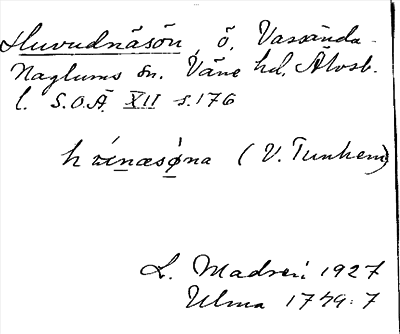 Huvudnäsön, ö, Vassända-
Naglums sn. Väne hd. Älvsb.
l. S.O.Ä. XII s. 176
(V. Tunhem)
L. Madsén 1927
Ulma 1749:7